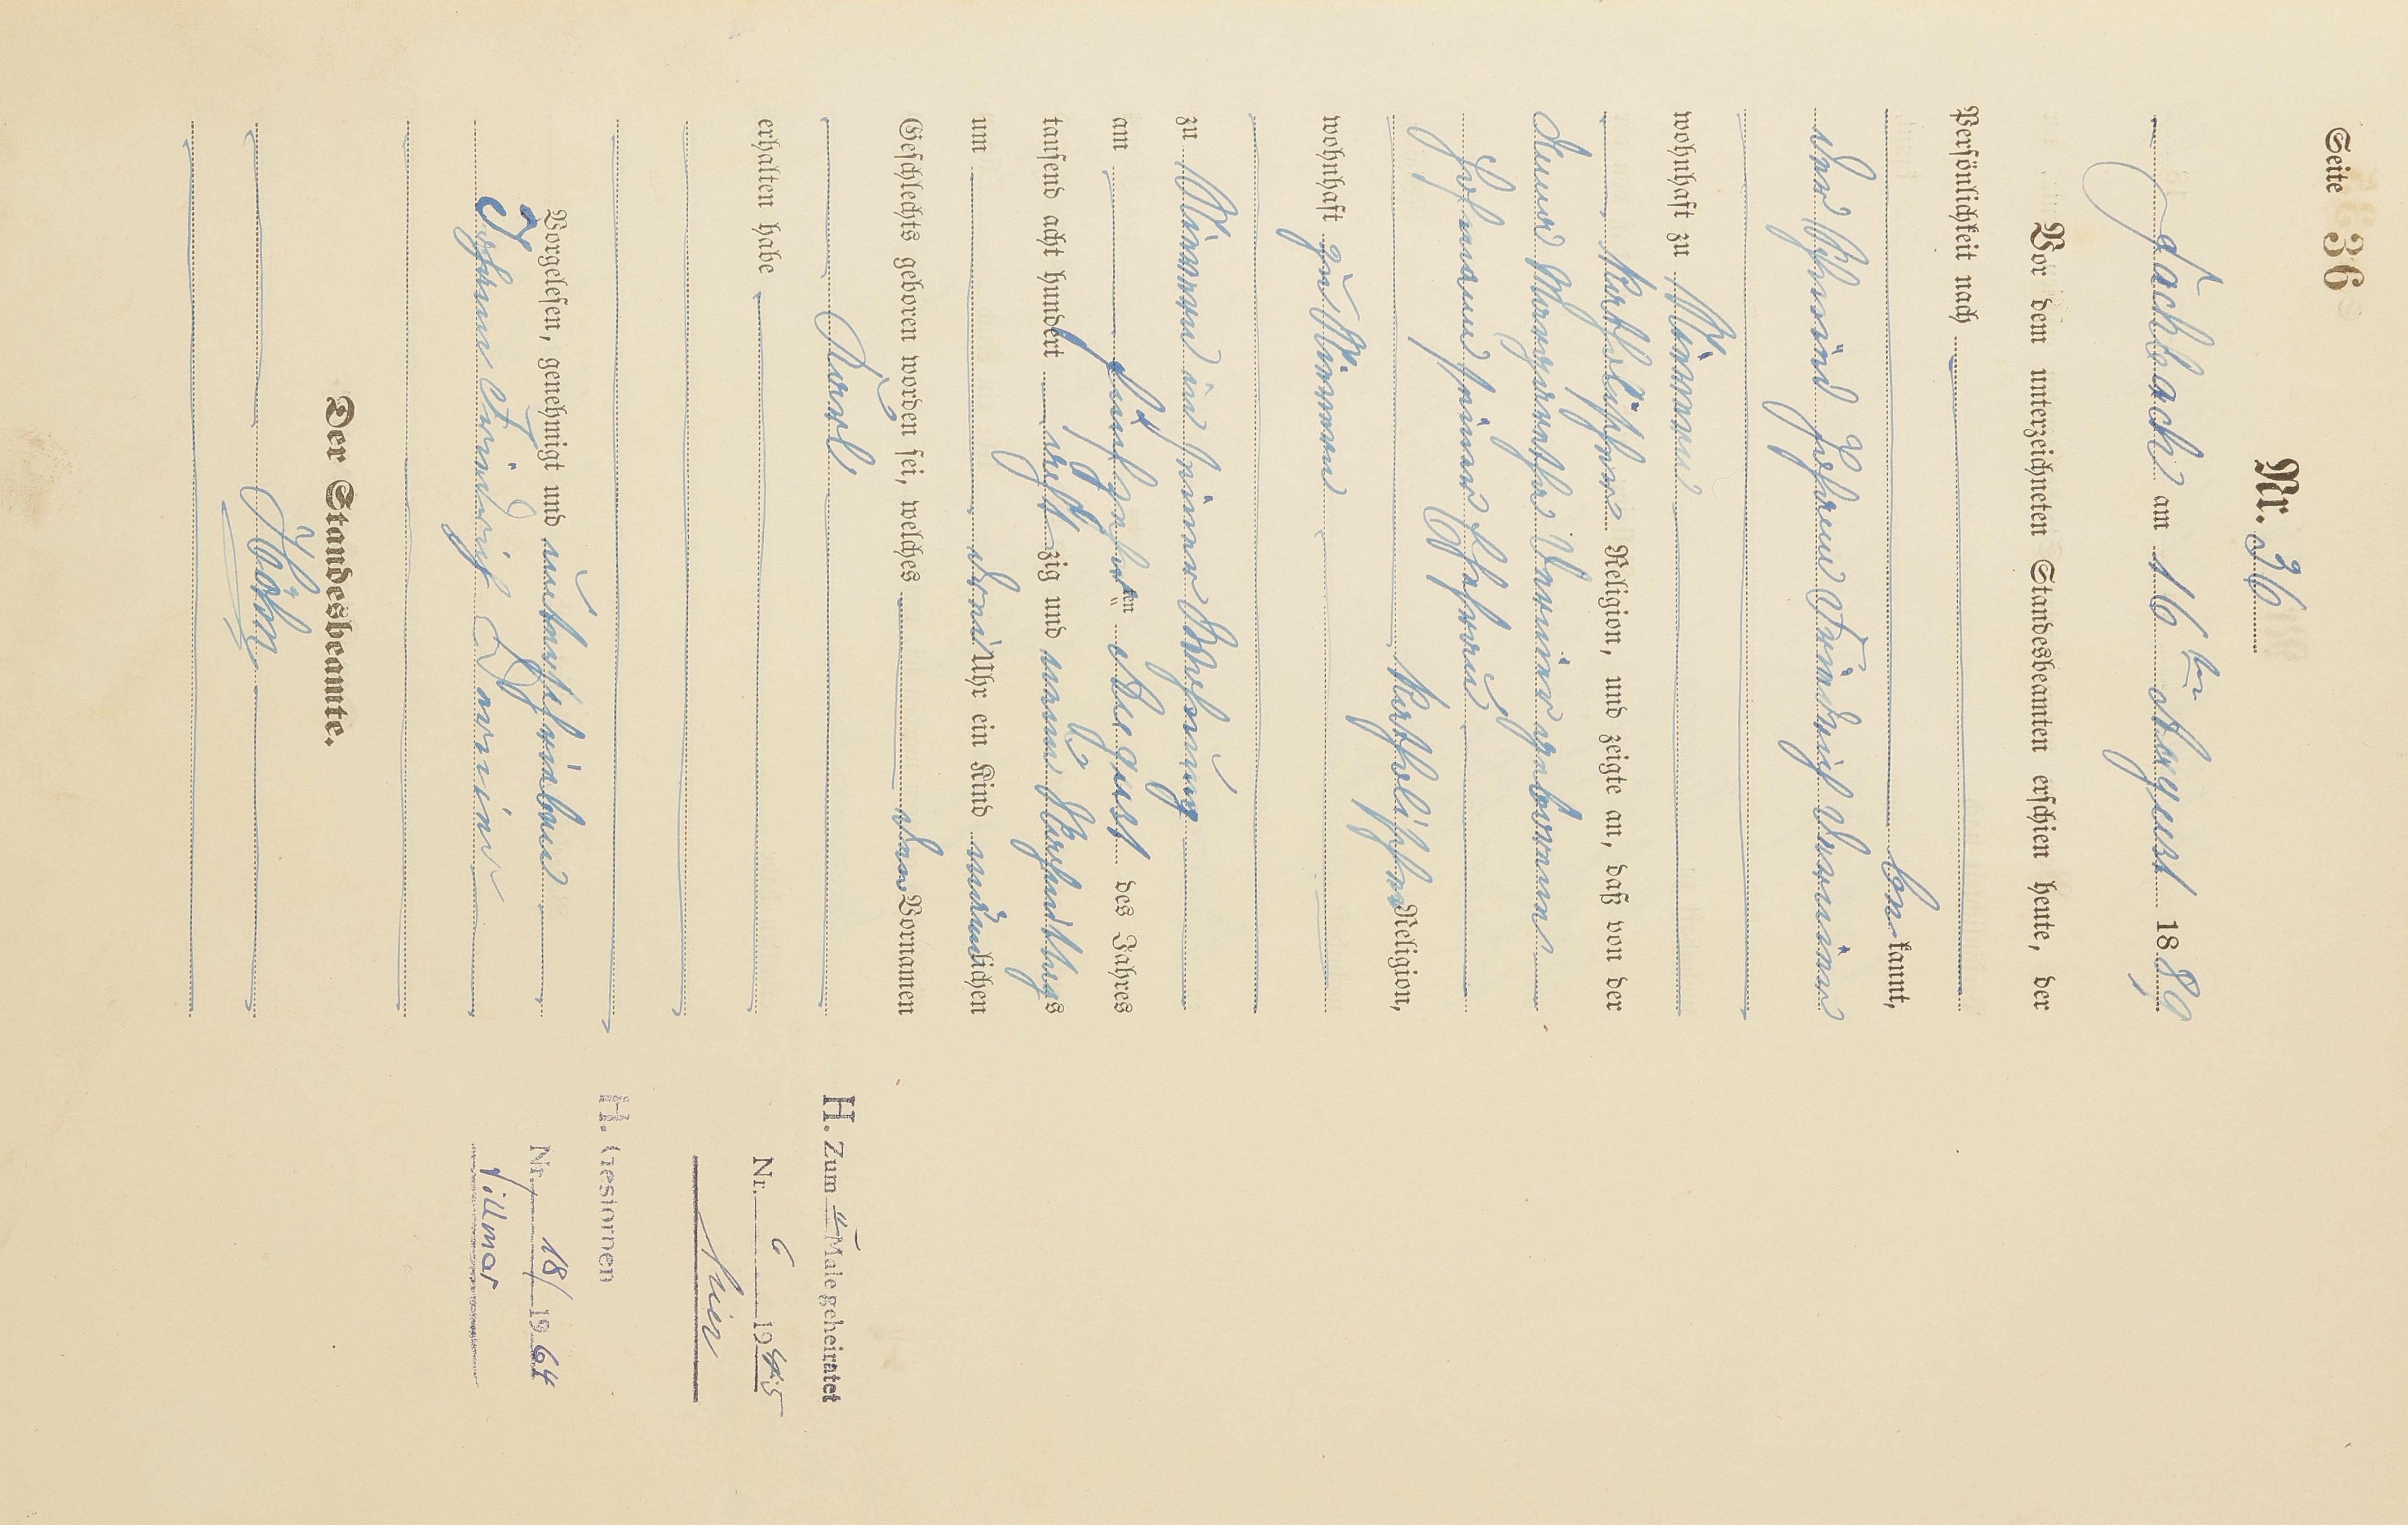 Seite 36
Nr. 36
am 16ten August 1889
Vor dem unterzeichneten Standesbeamten erschien heute, der
Persönlichkeit nach
bekannt,
der Johann Friedrich
wohnhaft zu
katholischer Religion, und zeigte an, daß von der
Anna Margaretha geborenen
seiner Ehefrau
katholischer Religion,
wohnhaft zu
zu in seiner Wohnung
am fünfzehnten August des Jahres
tausend acht hundert achtzig und neun Nachmittags
um drei Uhr ein Kind männlichen
Geschlechts geboren worden sei, welches den Vornamen
Karl
erhalten habe
Vorgelesen, genehmigt und unterschrieben
Johann Friedrich
Der Standesbeamte.
H. Zum Male geheiratet
Nr. 6 1945
H. Gestorben
Nr. 18/1964
Villmar